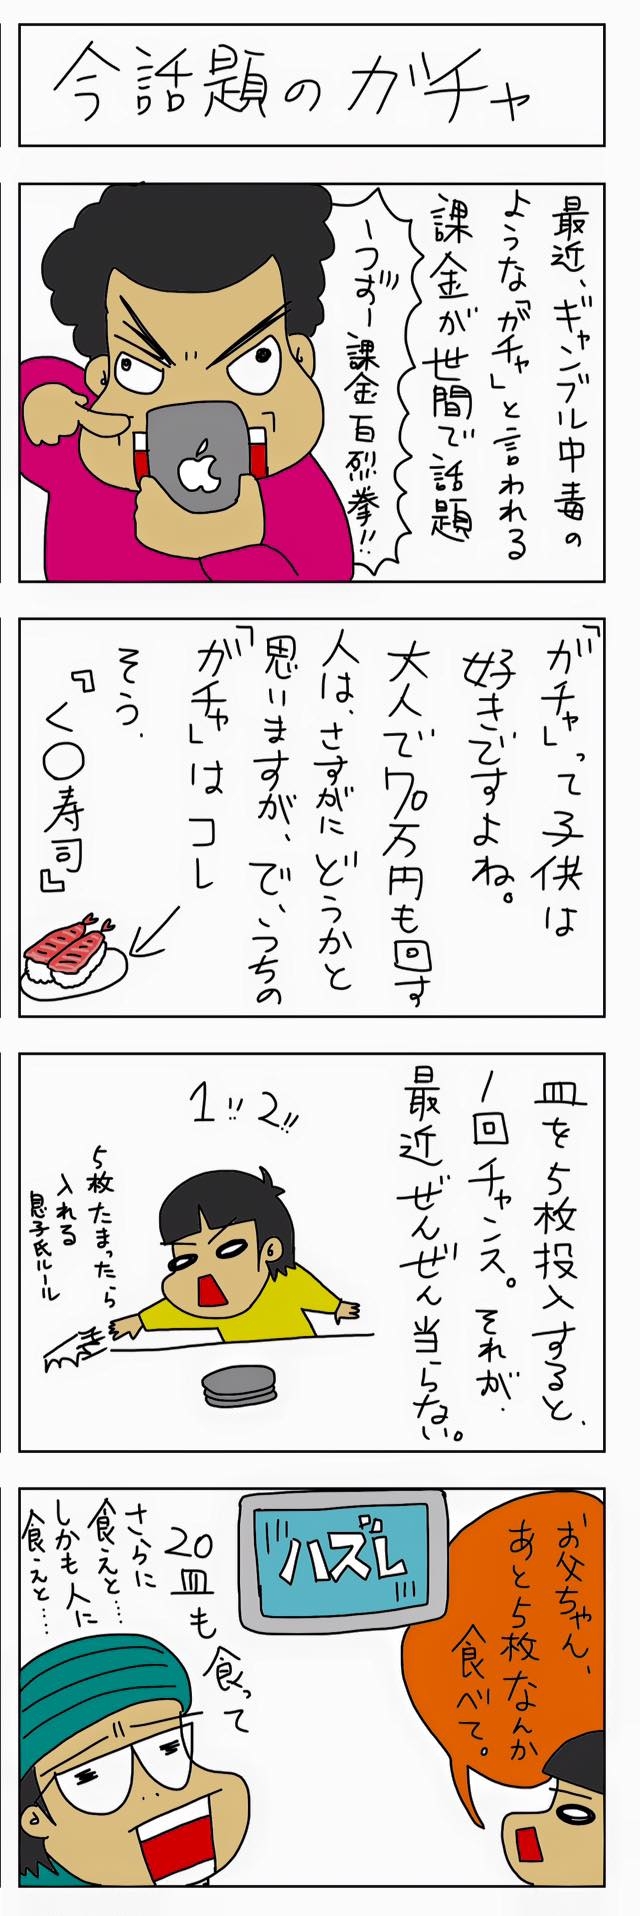 今話題のガチャ
最近、ギャンブル中毒の
ような「ガチャ」と言われる
課金が世間で話題
うずー
課金百烈拳!!
「ガチャ」って子供は
好きですよね。
大人で70万円も回す
人は、さすがにどうかと
思いますが、で、うちの
「ガチャ」はコレ
そう、
『く○寿司』
皿を5枚投入すると、
1回チャンス。それが、
最近ぜんぜん当らない。
1!!2!!
5枚たまったら
入れる
息子氏ルール
お父ちゃん、
あと5枚なんか
食べて。
ハズレ
20皿も食って
さらに
食えと…
しかも人に
食えと…